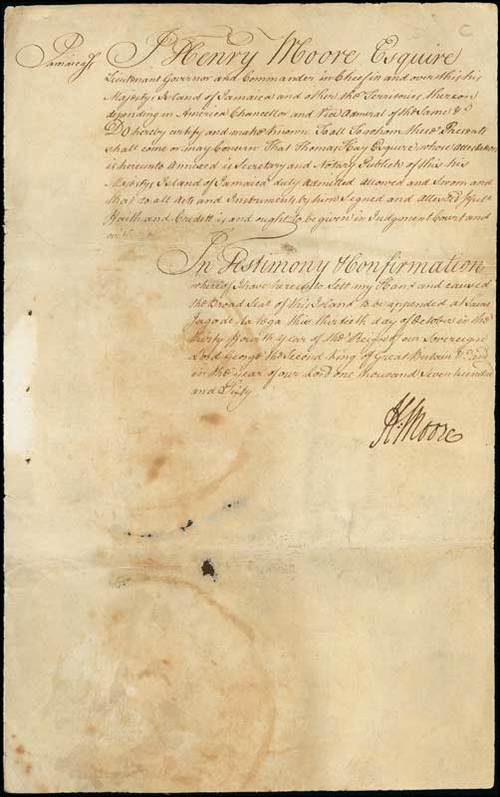 C
Jamaica Ss
I Henry Moore Esquire
Lieutenant Governor and Commander in Chief in and over this his
Majestys Island of Jamaica and other the Territories thereon
depending in America Chancellor and Vice Admiral of the Same &c
Do hereby certify and make known To all To whom these Presents
shall come or may Concern That Thomas Hay Esquire whose attestation
is hereunto Annexed is Secretary and Notary Publick of this his
Majestys Island of Jamaica duly admitted allowed and Sworn and
that to all Acts and Instruments by him Signed and Attested full
Faith and Credit is and ought to be given in Judgment Court and
In Testimony & Confirmation
whereof I have hereunto Sett my Hand and caused
the Broad Seal of this Island to be appended at Saint
Jago de la Vega this thirtieth day of October in the
thirty fourth Year of the Reign of our Sovereign
Lord George the Second King of Great Britain &c And
in the Year of our Lord one thousand Seven hundred
and Sixty
H: Moore